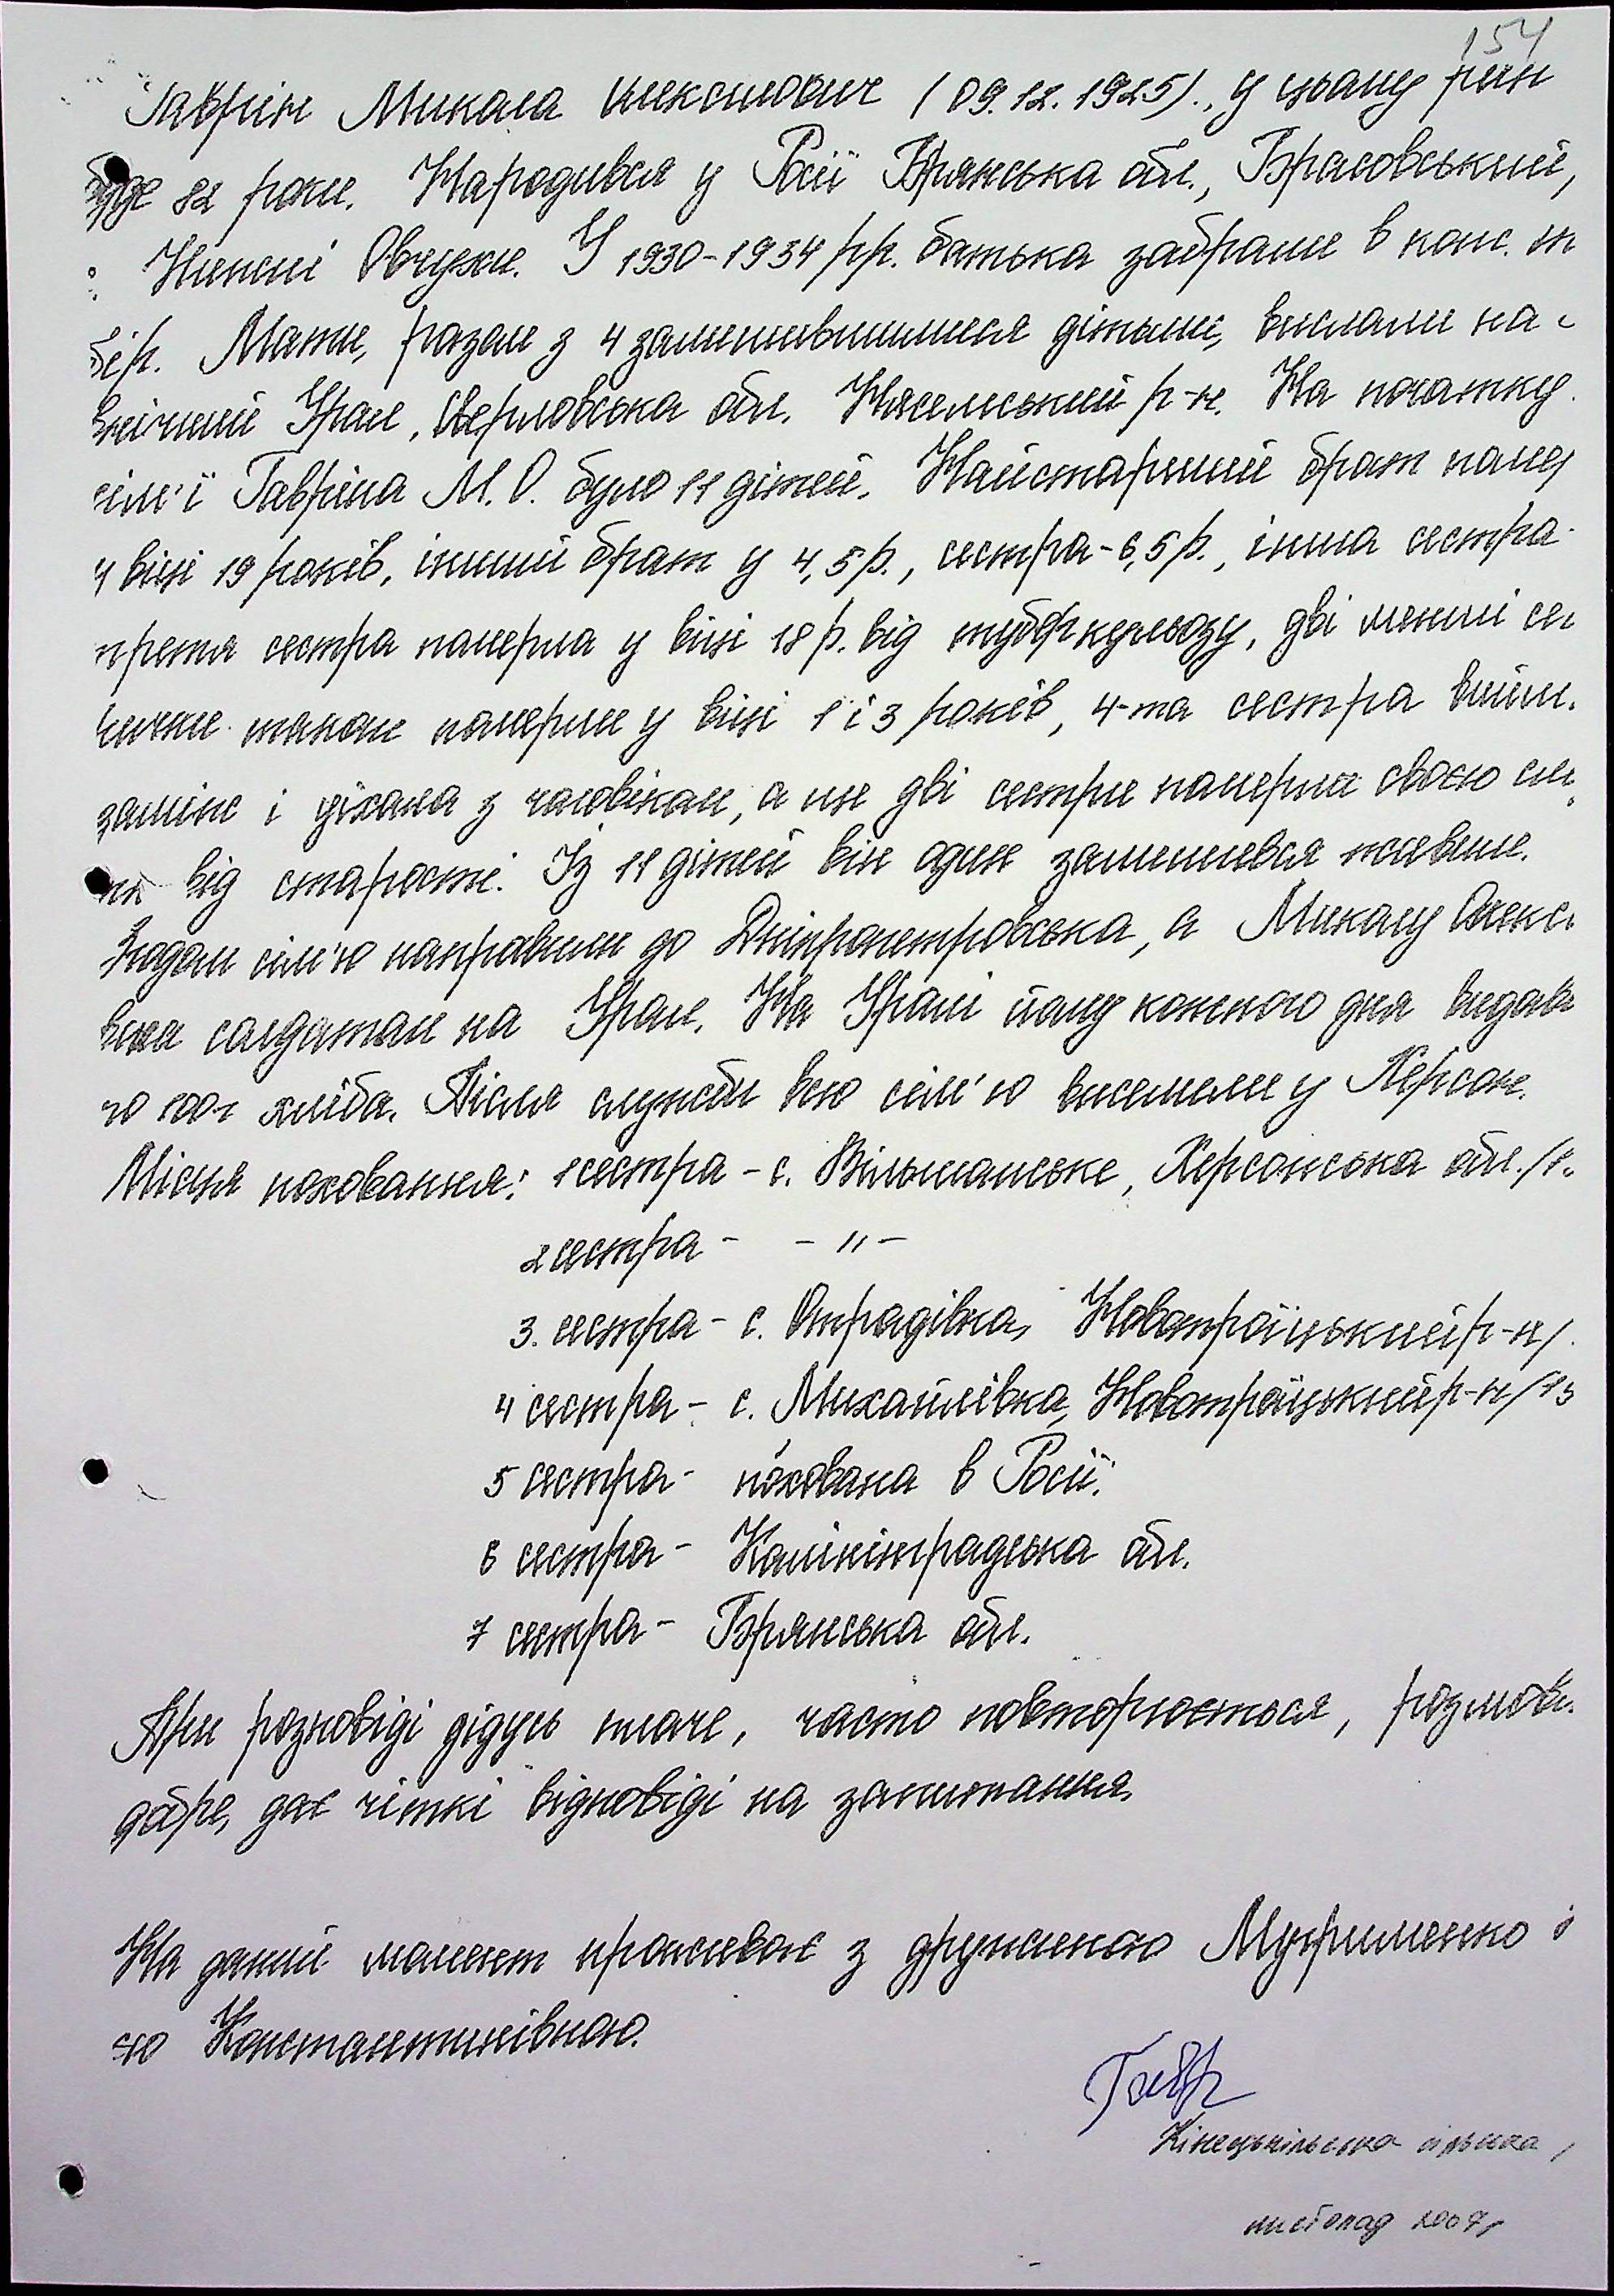 154
Гаврін Микола Олексійович (09.12.1925)., у цьому році
буде 82 роки. Народився у Росії Брянська обл., Брасовський,
У 1930-1934 рр. батька забрали в конс. та
бір. Мати, разом з 4 залишившимися дітьми, вислали на
Урал, Свердловська обл. р-н. На початку
сім'ї Гавріна М. О. було 11 дітей. Найстарший брат помер
у віці 19 років, інший брат у 4,5 р., сестра - 6,5 р., інша сестра -
третя сестра померла у віці 18 р. від туберкульозу, дві менші сес
трички також померли у віці 1 і 3 років, 4-та сестра вийш.
заміж і уїхала з чоловіком, а ще дві сестри померли своєю см
ю від старості. Із 11 дітей він один залишився живим.
Згодом сім'ю направили до Дніпропетровська, а Миколу Олекс
вича солдатом на Урал. На Уралі йому кожного дня видав
по 100 г хліба. Після служби всю сім'ю виселили у Херсон.
Місця поховання: 1 сестра - с. Вільшанське, Херсонська обл.
2 сестра - - " -
3. сестра - с. Отрадівка, Новотроїцький р-н
4 сестра - с. Михайлівка, Новотроїцький р-н
5 сестра - похована в Росії.
6 сестра - Калінінградська обл.
7 сестра - Брянська обл.
При розповіді дідусь плаче, часто повторюється, розмов.
добре, дає чіткі відповіді на запитання.
На даний момент проживає з дружиною
ю Константинівною.
Гавр
листопад 2007р